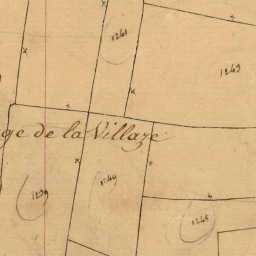 1241
1243
ge de la Villaze
1239
1244
1245